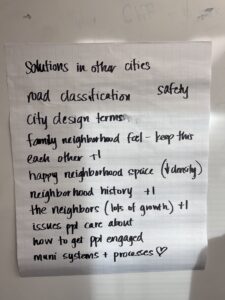 Solutions in other cities
road classification safety
city design terms
family neighborhood feel - keep this
each other +1
happy neighborhood space (↓density)
neighborhood history +1
the neighbors (lots of growth) +1
issues ppl care about
how to get ppl engaged
muni systems + processes ♡